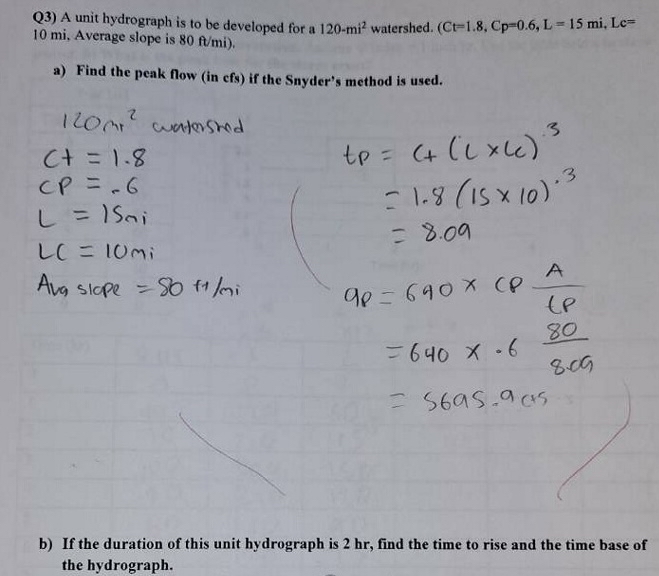 Q3) A unit hydrograph is to be developed for a 120-mi² watershed. (Ct=1.8, Cp=0.6, L = 15 mi, Lc=
10 mi, Average slope is 80 ft/mi).
a) Find the peak flow (in cfs) if the Snyder's method is used.
120mi² watershed
Ct = 1.8
CP = .6
L = 15mi
LC = 10mi
Avg slope = 80 ft/mi
tp = Ct (L x Lc)^.3
= 1.8 (15 x 10)^.3
= 8.09
qp = 640 x CP A/tp
= 640 x .6 80/8.09
= 5695.9 cfs
b) If the duration of this unit hydrograph is 2 hr, find the time to rise and the time base of
the hydrograph.